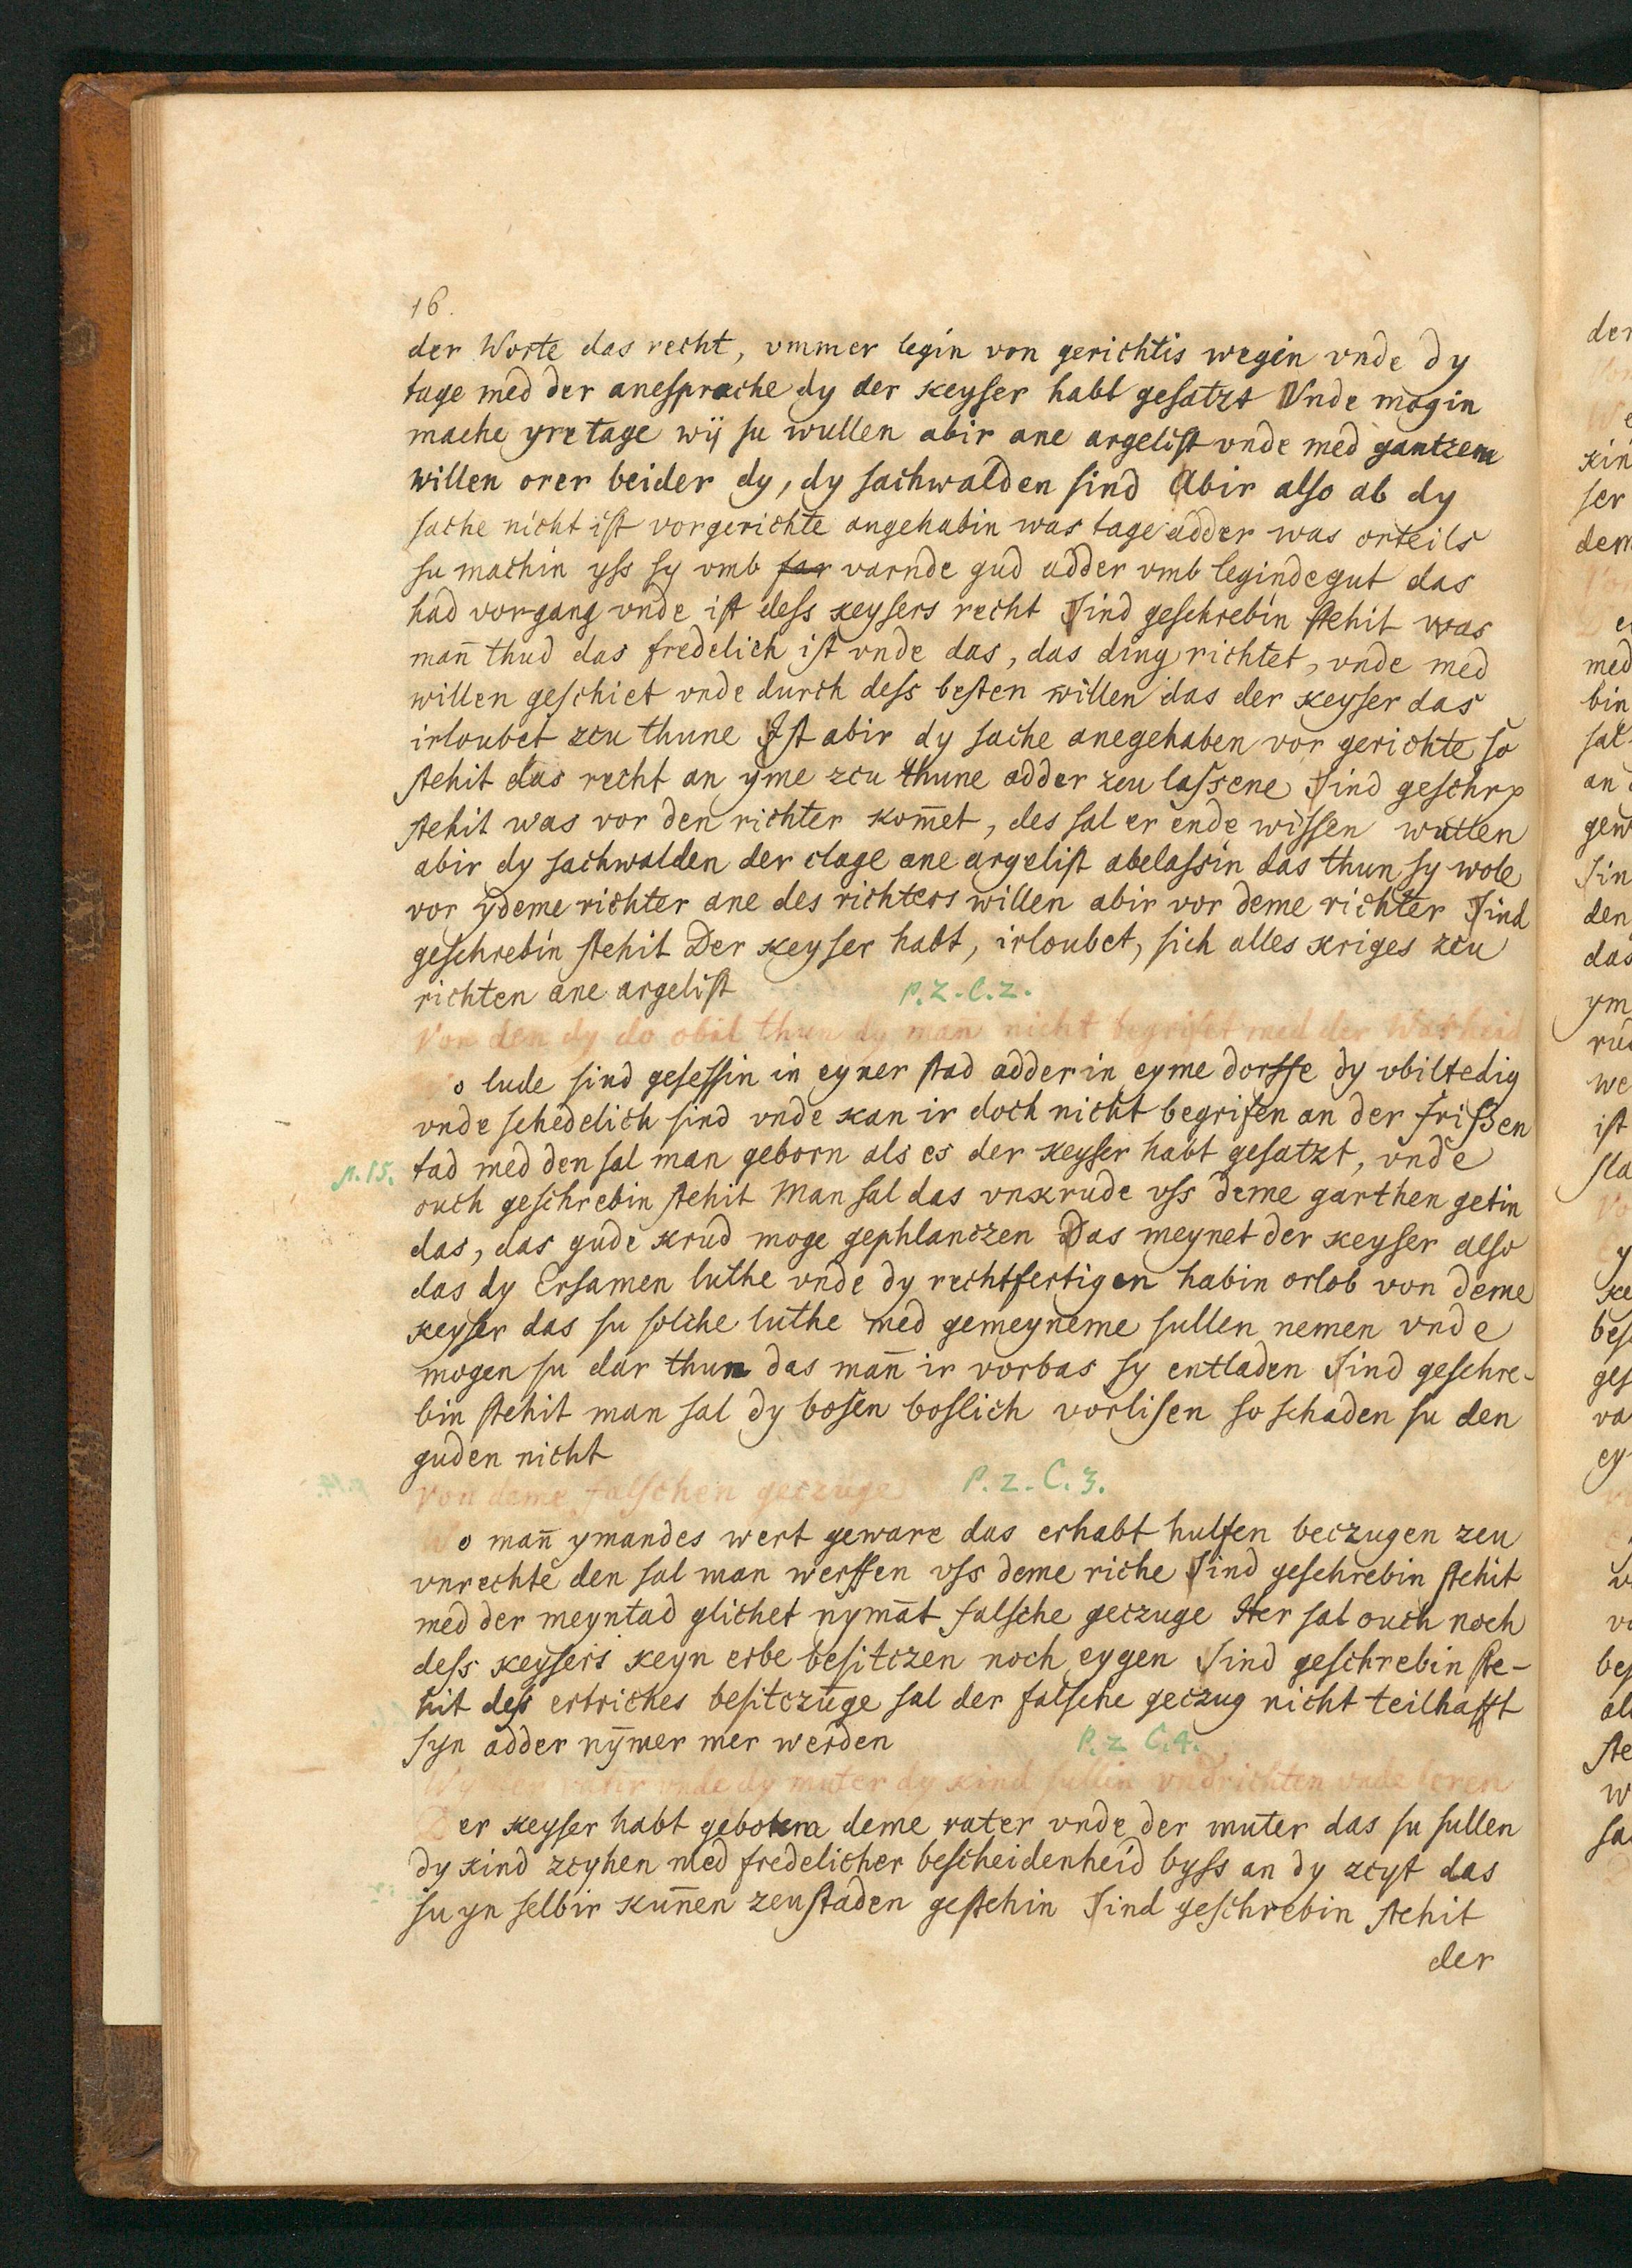 16.
der Worte das recht, ummer legin von gerichtis wegin vnde dy
tage med der anesprache dy der keyser habt gesatzt Vnde mogin
mache yre tage wij su wullen abir ane argelist vnde med gantzem
willen orer beider dy, dy sachwalden sind Abir also ab dy
sache nicht ist vorgerichte angehabin was tage adder was orteils
su machin yss sy vmb far varnde gud adder vmb legindegut das
had vorgang vnde ist dess keysers recht Sind geschrebin stehit was
man̄ thud das fredelich ist vnde das, das ding richtet, vnde med
willen geschiet vnde durch dess besten willen das der keyser das
irloubet zcu thune Ist abir dy sache anegehaben vor gerichte so
stehit das recht an yme zcu thune adder zcu lassene Sind geschrp
stehit was vor den richter kom̄et, des sal er ende wissen wullen
abir dy sachwalden der clage ane argelist abelassin das thun sy wole
vor ydeme richter ane des richters willen abir vor deme richter Sind
geschrebin stehit Der keyser habt, irloubet, sich alles kriges zcu
richten ane argelist P. 2. C. 2.
Von den dy do obil thun dy man nicht begrifet med der Warheid
o lude sind gesessin in eyner stad adder in eyme dorffe dy vbiltedig
vnde schedelich sind vnde kan ir doch nicht begrifen an der frißen
p. 15. tad med den sal man geborn als es der keyser habt gesatzt, vnde
ouch geschrebin stehit Man sal das vnkrude vss deme garthen getin
das, das gude krud moge gephlanczen Das meynet der keyser also
das dy Ersamen luthe vnde dy rechtfertigen habin orlob von deme
keyser das su solche luthe med gemeyneme sullen nemen vnde
mogen su dar thun das man̄ ir vorbas sy entladen Sind geschre-
bin stehit man sal dy bosen boslich vorlisen so schaden su den
guden nicht
Von deme falschen geczuge P. 2. C. 3.
o man̄ ymandes wert geware das erhabt hulfen beczugen zcu
vnrechte den sal man werffen vss deme riche Sind geschrebin stehit
med der meyntad glichet nymāt falsche geczuge Her sal ouch noch
dess keysers keyn erbe besitczen noch eygen Sind geschrebin ste-
hit dess ertriches besitczuge sal der falsche geczug nicht teilhafft
syn adder nȳmer mer werden P. 2 C. 4.
Wy der vatir vnde dy muter dy kind sullin vndrichten vnde leren
Der keyser habt geboten deme vater vnde der muter das su sullen
dy kind zcyhen med fredelicher bescheidenheid byss an dy zcyt das
su yn selbir kun̄en zcustaden gestehin Sind geschrebin stehit
der